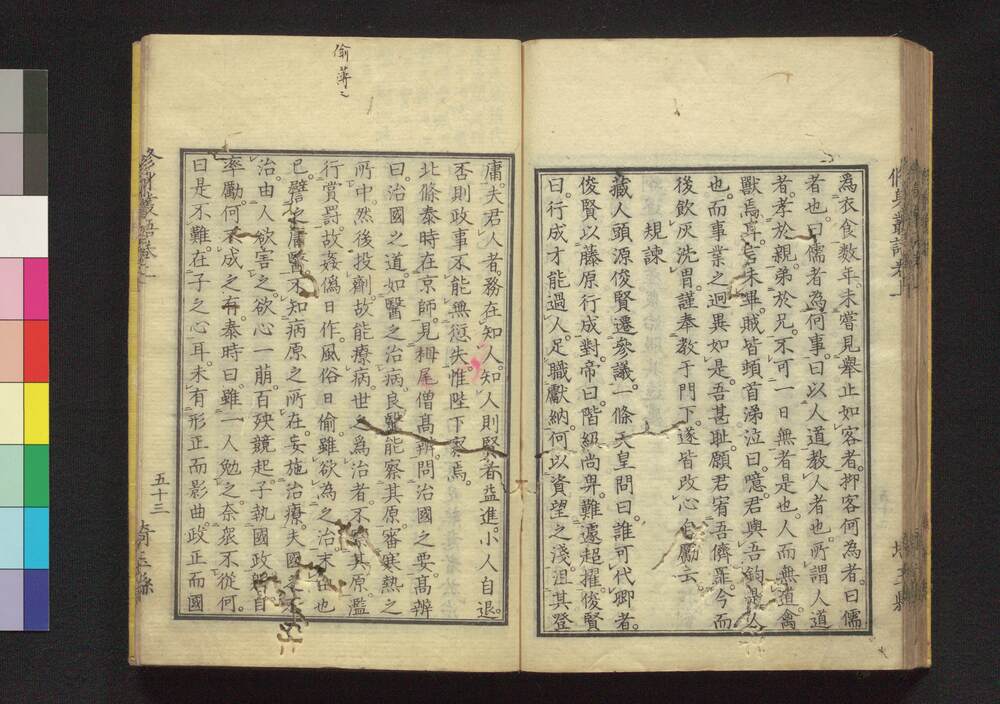 為衣食数年。未嘗見舉止如客者。抑客何為者。曰儒
者也。曰儒者為何事。曰以人道教人者也。所謂人道
者。孝於親。弟於兄。不可一日無者是也。人而無道。禽
獸焉耳。言未畢。賊皆頓首涕泣曰。噫。君與吾鈞是人
也。而事業之迥異如是。吾甚耻。願君宥吾儕罪。今而
後飲灰洗胃。謹奉教于門下。遂皆改心自勵云。
規諫
藏人頭源俊賢遷參議。一條天皇問曰。誰可代卿者。
俊賢以藤原行成對。帝曰。階級尚卑。難遽超擢。俊賢
曰。行成才能過人。足職獻納。何以資望之淺。沮其登
庸。夫君人者。務在知人。知人則賢者益進。小人自退。
否則政事不能無愆失。惟陛下察焉。
北條泰時在京師。見栂尾僧高辨。問治國之要。高辨
曰。治國之道。如醫之治病。良醫能察其原。審寒熱之
所中。然後投劑。故能療病。世之為治者。不察其原。濫
行賞罰。故姦偽日作。風俗日偷。雖欲為之治。末由也
已。譬之庸醫不知病原之所在。妄施治療。夫國之不
治由人欲害之。欲心一萠。百殃競起。子執國政。躬自
率勵。何不成之有。泰時曰。雖一人勉之。奈衆不從何。
曰是不難。在子之心耳。未有形正而影曲。政正而國
偷薄
五十三